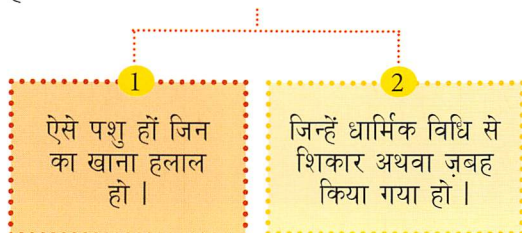 1
ऐसे पशु हों जिन
का खाना हलाल
हो |
2
जिन्हें धार्मिक विधि से
शिकार अथवा ज़बह
किया गया हो |